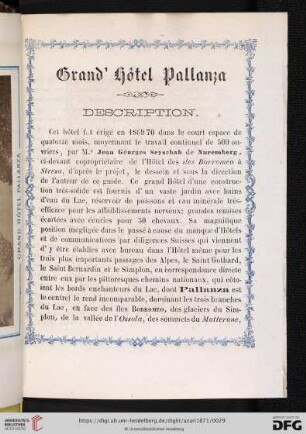 Grand' Hôtel Pallanza
DESCRIPTION.
Cet hôtel f.t érigé en 1869 70 dans le court espace de
quatorze mois, moyennant le travail continuel de 500 ou-
vriers, par M.r Jean Géorges Seyschab de Nuremberg,
ci-devant copropriétaire de l'Hôtel des îles Borromeo à
Stresa, d'après le projet, le dessin et sous la direction
de l'auteur de ce guide. Ce grand Hôtel d'une construc-
tion très-solide est fourni d'un vaste jardin avec bains
d'eau du Lac, réservoir de poissons et eau minérale très-
efficace pour les affaiblissements nerveux; grandes remises
écuries pour 50 chevaux. Sa magnifique
position négligée dans le passé à cause du manque d'Hôtels
et de communications par diligences Suisses qui viennent
d'y être établies avec bureau dans l'Hôtel même pour les
trois plus importants passages des Alpes, le Saint Gothard,
le Saint Bernardin et le Simplon, en correspondance directe
entre eux par les pittoresques chemins nationaux, qui cô-
toient les bords enchanteurs du Lac, dont Pallanza est
le centre) le rend incomparable, dominant les trois branches
du Lac, en face des îles Borromeo, des glaciers du Sim-
plon, de la vallée de l'Ossola, des sommets du Motterone,
GRAND HÔTEL PALLANZA
UNIVERSITÄTS-
BIBLIOTHEK
HEIDELBERG
https://digi.ub.uni-heidelberg.de/diglit/azari1871/0029
© Universitätsbibliothek Heidelberg
gefördert durch die
DFG